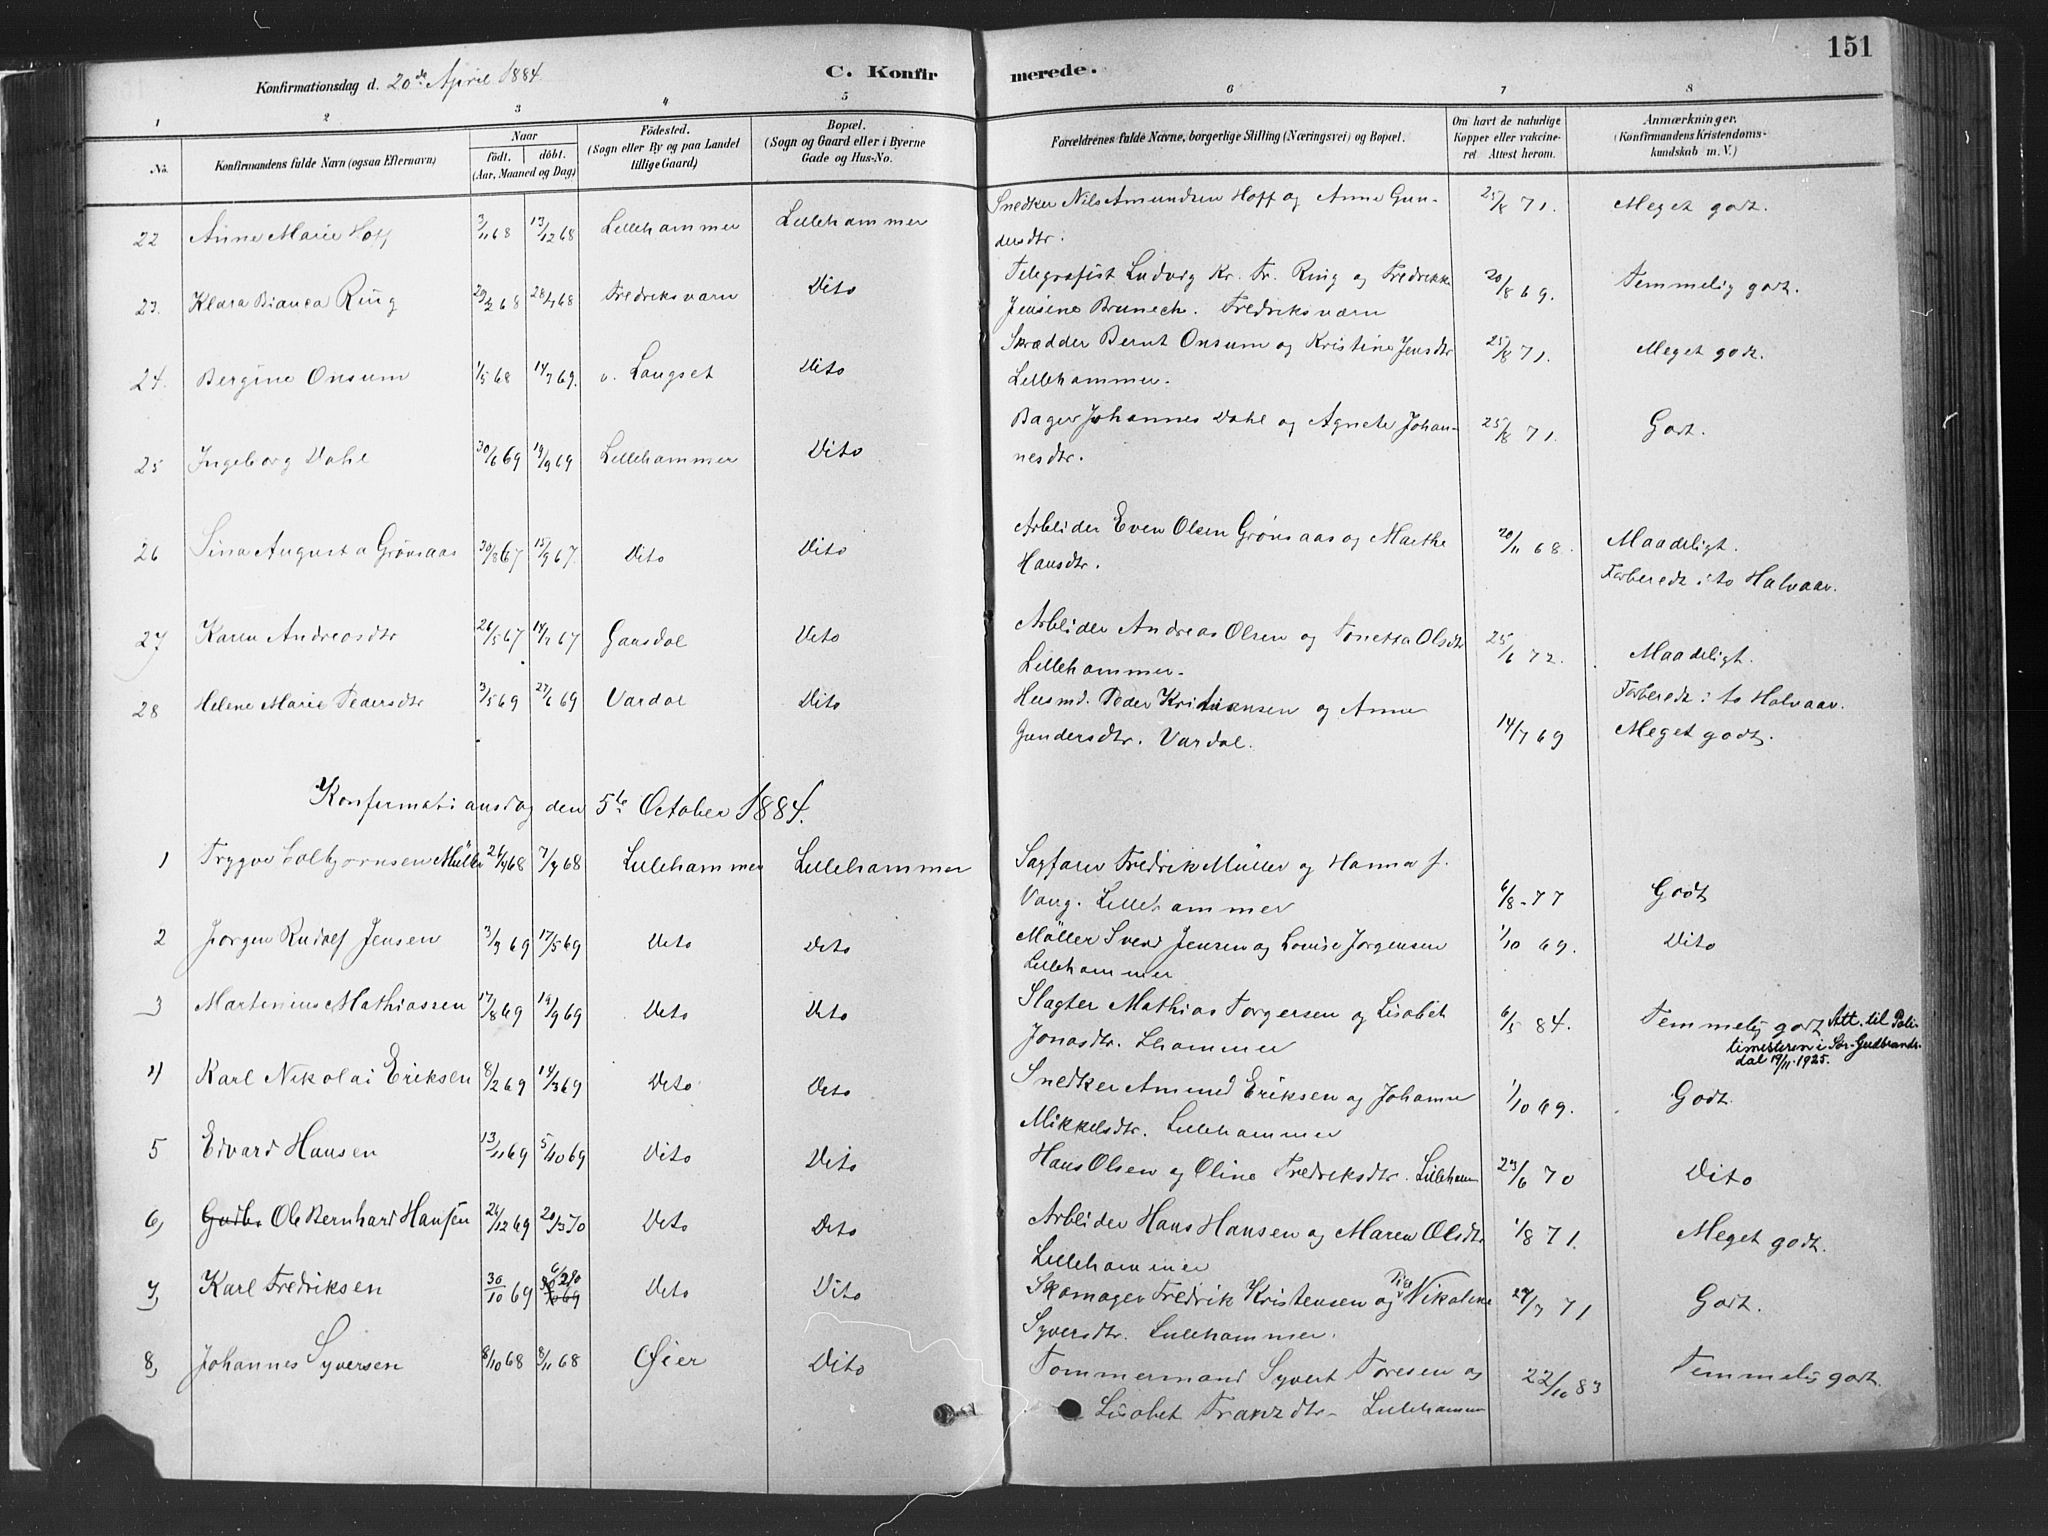 151
Konfirmationsdag d. 20de April 1884.
C. Konfirmerede.
1 2 3 4 5 6 7 8
No. Konfirmandens fulde Navn (ogsaa Efternavn) Naar födt. döbt. (Aar, Maaned og Dag) Födested. (Sogn eller By og paa Landet tillige Gaard) Bopæl. (Sogn og Gaard eller i Byerne Gade og Hus-No. Forældrenes fulde Navne, borgerlige Stilling (Næringsvei) og Bopæl. Om havt de naturlige Kopper eller vakcineret Attest herom. Anmærkninger. (Konfirmandens Kristendomskundskab m. V.)
22 Anne Marie Hoff 3/11 68 13/12 68 Lillehammer Lillehammer Snedker Nils Amundsen Hoff og Anne Gun- 25/8 71. Meget godt.
dersdtr.
23. Klara Bianca Ring 29/2 68 28/4 68 Fredriksværn Dito Telegrafist Ludvig Kr. Fr. Ring og Fredrikke 20/8 69. Temmelig godt.
Jensine Brunech. Fredriksværn
24. Bergine Onsum 1/5 68 14/7 69. v. Langset Dito Skrædder Bernt Onsum og Kristine Jensdtr 25/8 71. Meget godt.
Lillehammer.
25 Ingeborg Dahl 30/6 69 19/9 69 Lillehammer Dito Bager Johannes Dahl og Agnete Johan- 25/8 71. Godt.
nesdtr.
26 Sina Augusta Grönsaas 30/8 67 15/9 67. Dito Dito Arbeider Even Olsen Grönsaas og Marthe 20/11 68. Maadeligt.
Hansdtr. Forberedt i to Halvaar.
27 Karen Andreasdtr 26/5 67 14/7 67 Gausdal Dito Arbeider Andreas Olsen og Tonetta Olsdtr 25/6 72. Maadeligt.
Lillehammer. Forberedt i to Halvaar.
28 Helene Marie Pedersdtr 3/5 69 27/6 69 Vardal Dito Husmd. Peder Kristiansen og Anne
Gundersdtr. Vardal. 14/7 69 Meget godt.
Konfirmationsdag den 5te October 1884.
1 Trygve Colbjørnsen Müller 26/4 68 7/7 68 Lillehammer Lillehammer Sagfører Fredrik Müller og Hanna f.
Vang. Lillehammer 6/8-77 Godt
2 Jørgen Rudolf Jensen 3/3 69 17/5 69 Dito Dito Möller Svend Jensen og Lovise Jørgensen 1/10 69. Dito
Lillehammer
3 Martinius Mathiassen 17/8 69 19/9 69 Dito Dito Slagter Mathias Torgersen og Lisabet 6/5 84. Temmelig godt Att. til Poli-
Jonasdtr. Lhammer timesteren i Sør-Gudbrands-
dal 19/11-1925.
4) Karl Nikolai Eriksen 8/2 69 14/3 69 Dito Dito Snedker Amund Eriksen og Johanne 1/10 69. Godt
Mikkelsdtr. Lillehammer
5 Edvard Hansen 13/11 69 5/10 69 Dito Dito Hans Olsen og Oline Fredriksdtr. Lilleham 23/6 70 Dito
6, Gudbr. Ole Bernhard Hansen 26/12 69 20/3 70 Dito Dito Arbeider Hans Hansen og Maren Olsdtr 1/8 71. Meget godt.
Lillehammer
7, Karl Fredriksen 30/10 69 6/2 70 Dito Dito Skomager Fredrik Kristensen og Pige Nikoline 29/7 71 Godt.
Syversdtr. Lillehammer.
8, Johannes Syversen 8/10 68 8/11 68 Øier Dito Tømmermand Syvert Toresen og 22/10 83 Temmelig godt.
Lisabet Frantzdtr- Lillehammer